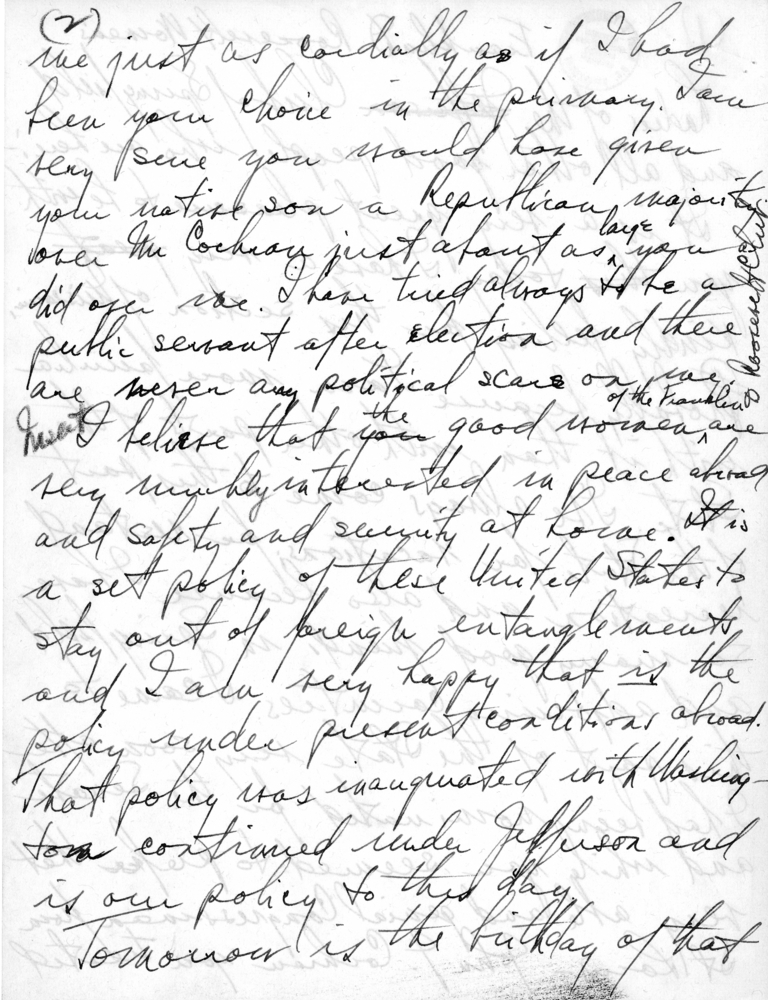 (2)
me just as cordially as if I had
been your choice in the primary. I am
very sure you would have given
your native son a Republican majority
over Mr Cochran just about as large you
did over me. I have tried always to be a
public servant after election and there
are never any political scars on me.
Insert I believe that the good women of the Franklin D Roosevelt Club are
very much interested in peace abroad
and safety and security at home. It is
a set policy of these United States to
stay out of foreign entanglements
and I am very happy that is the
policy under present conditions abroad.
That policy was inaugurated with Washing-
ton continued under Jefferson and
is our policy to this day.
Tomorrow is the birthday of that